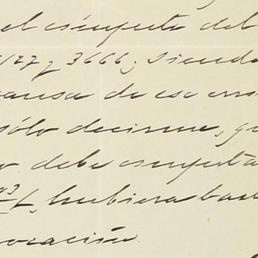 el cómputo del
6127 y 3666; siendo
causa de ese erro
sólo decirme, q
debe computa
hubiera bas
oración